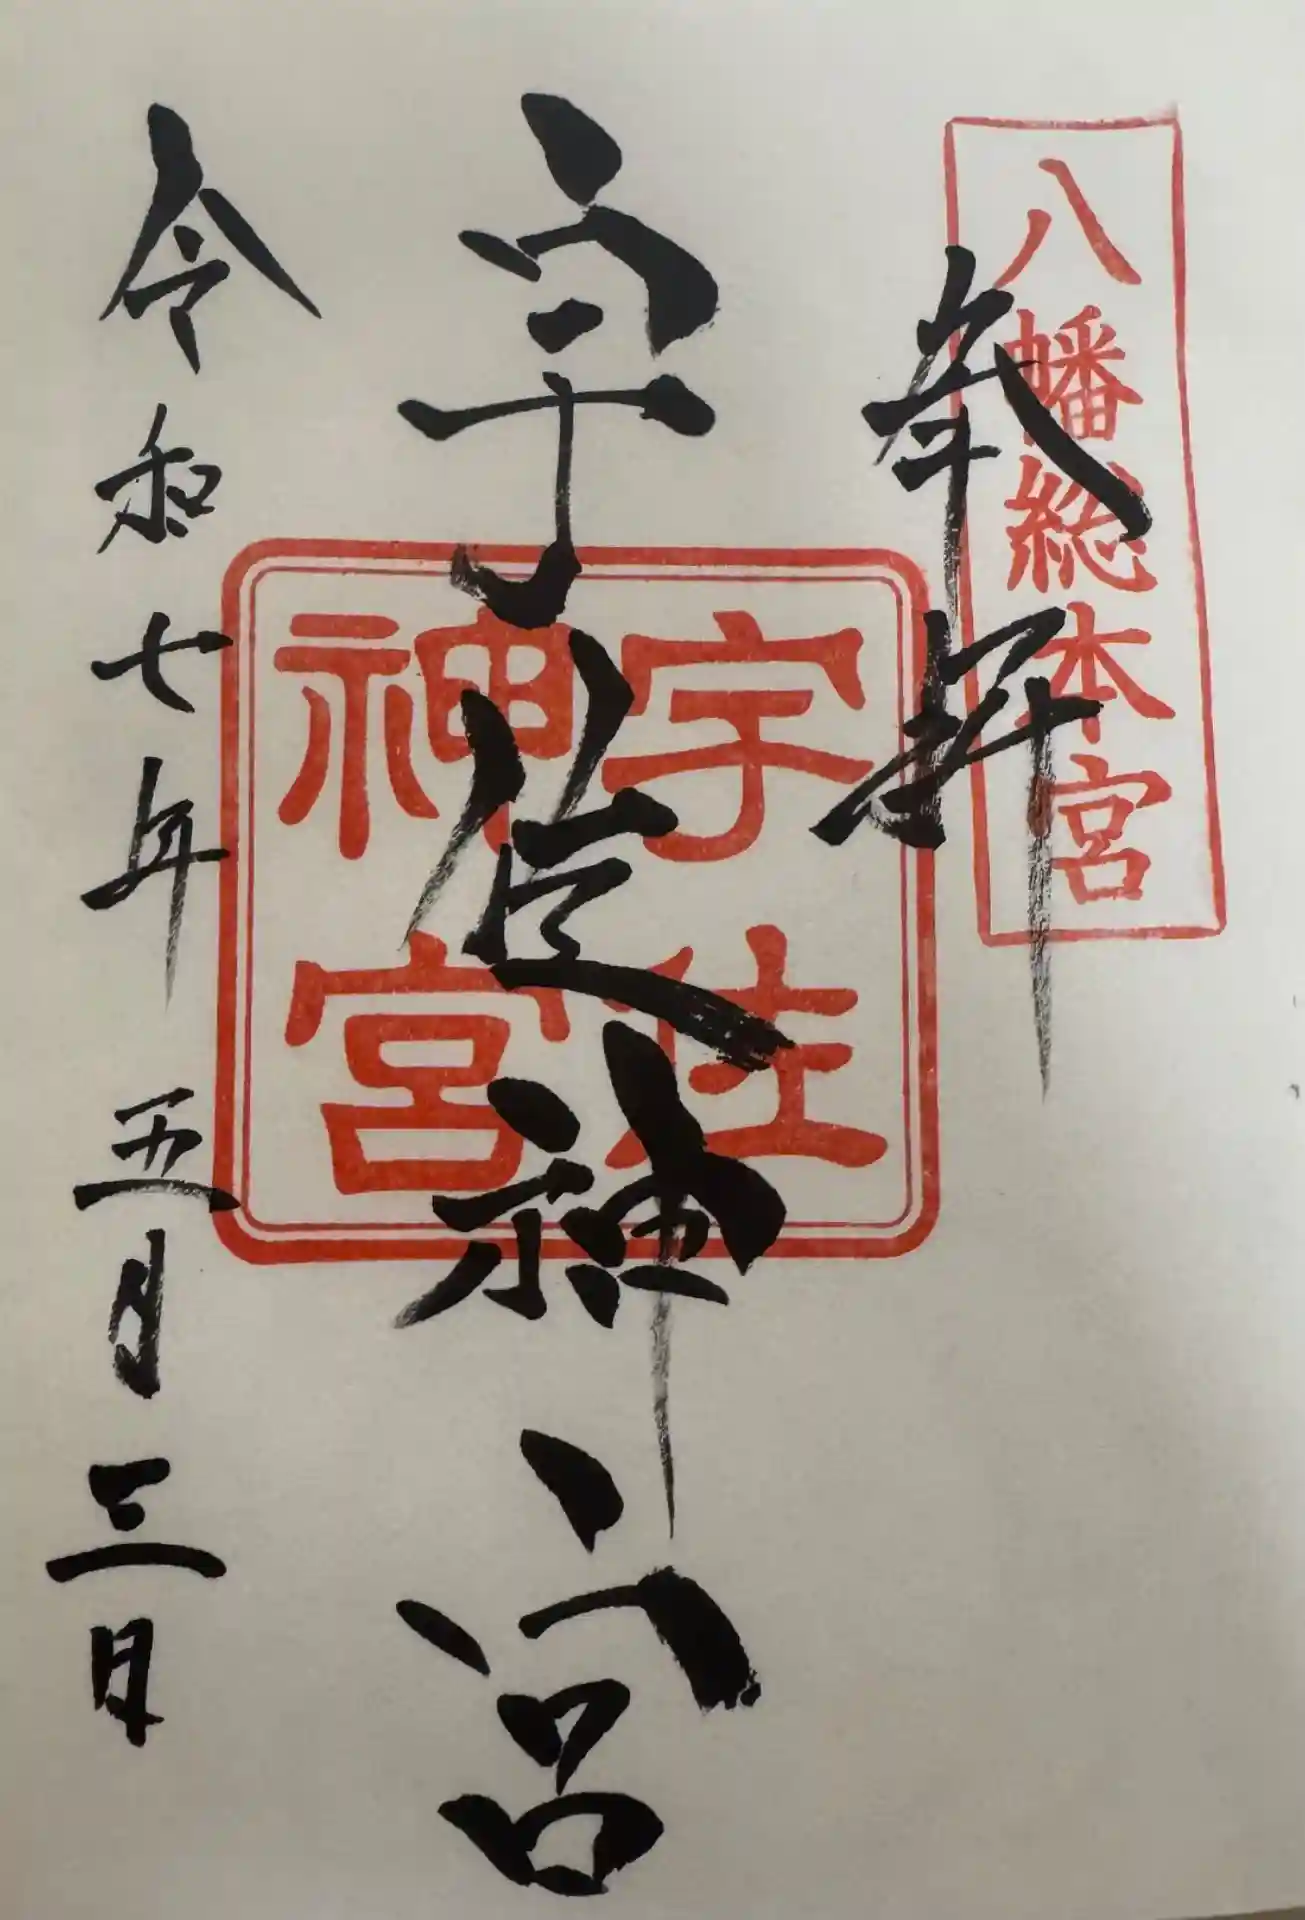 八幡総本宮
奉拝
宇佐神宮
宇佐
神宮
令和七年五月三日